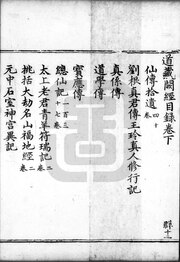 道藏闕經目錄卷下
仙傳拾遺四十卷
劉根真君傳王玲真人修行記
真係傳
道學傳
寶應傳
總仙記一百三十七卷
太上老君青羊符瑞記二卷
桃括大劫名山福地經二卷
元中石室神宮異記